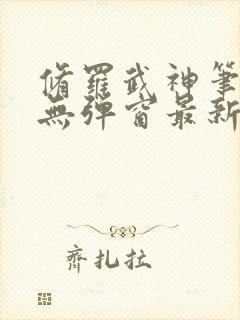 脩羅武神筆
無彈窗最新
齊扎拉